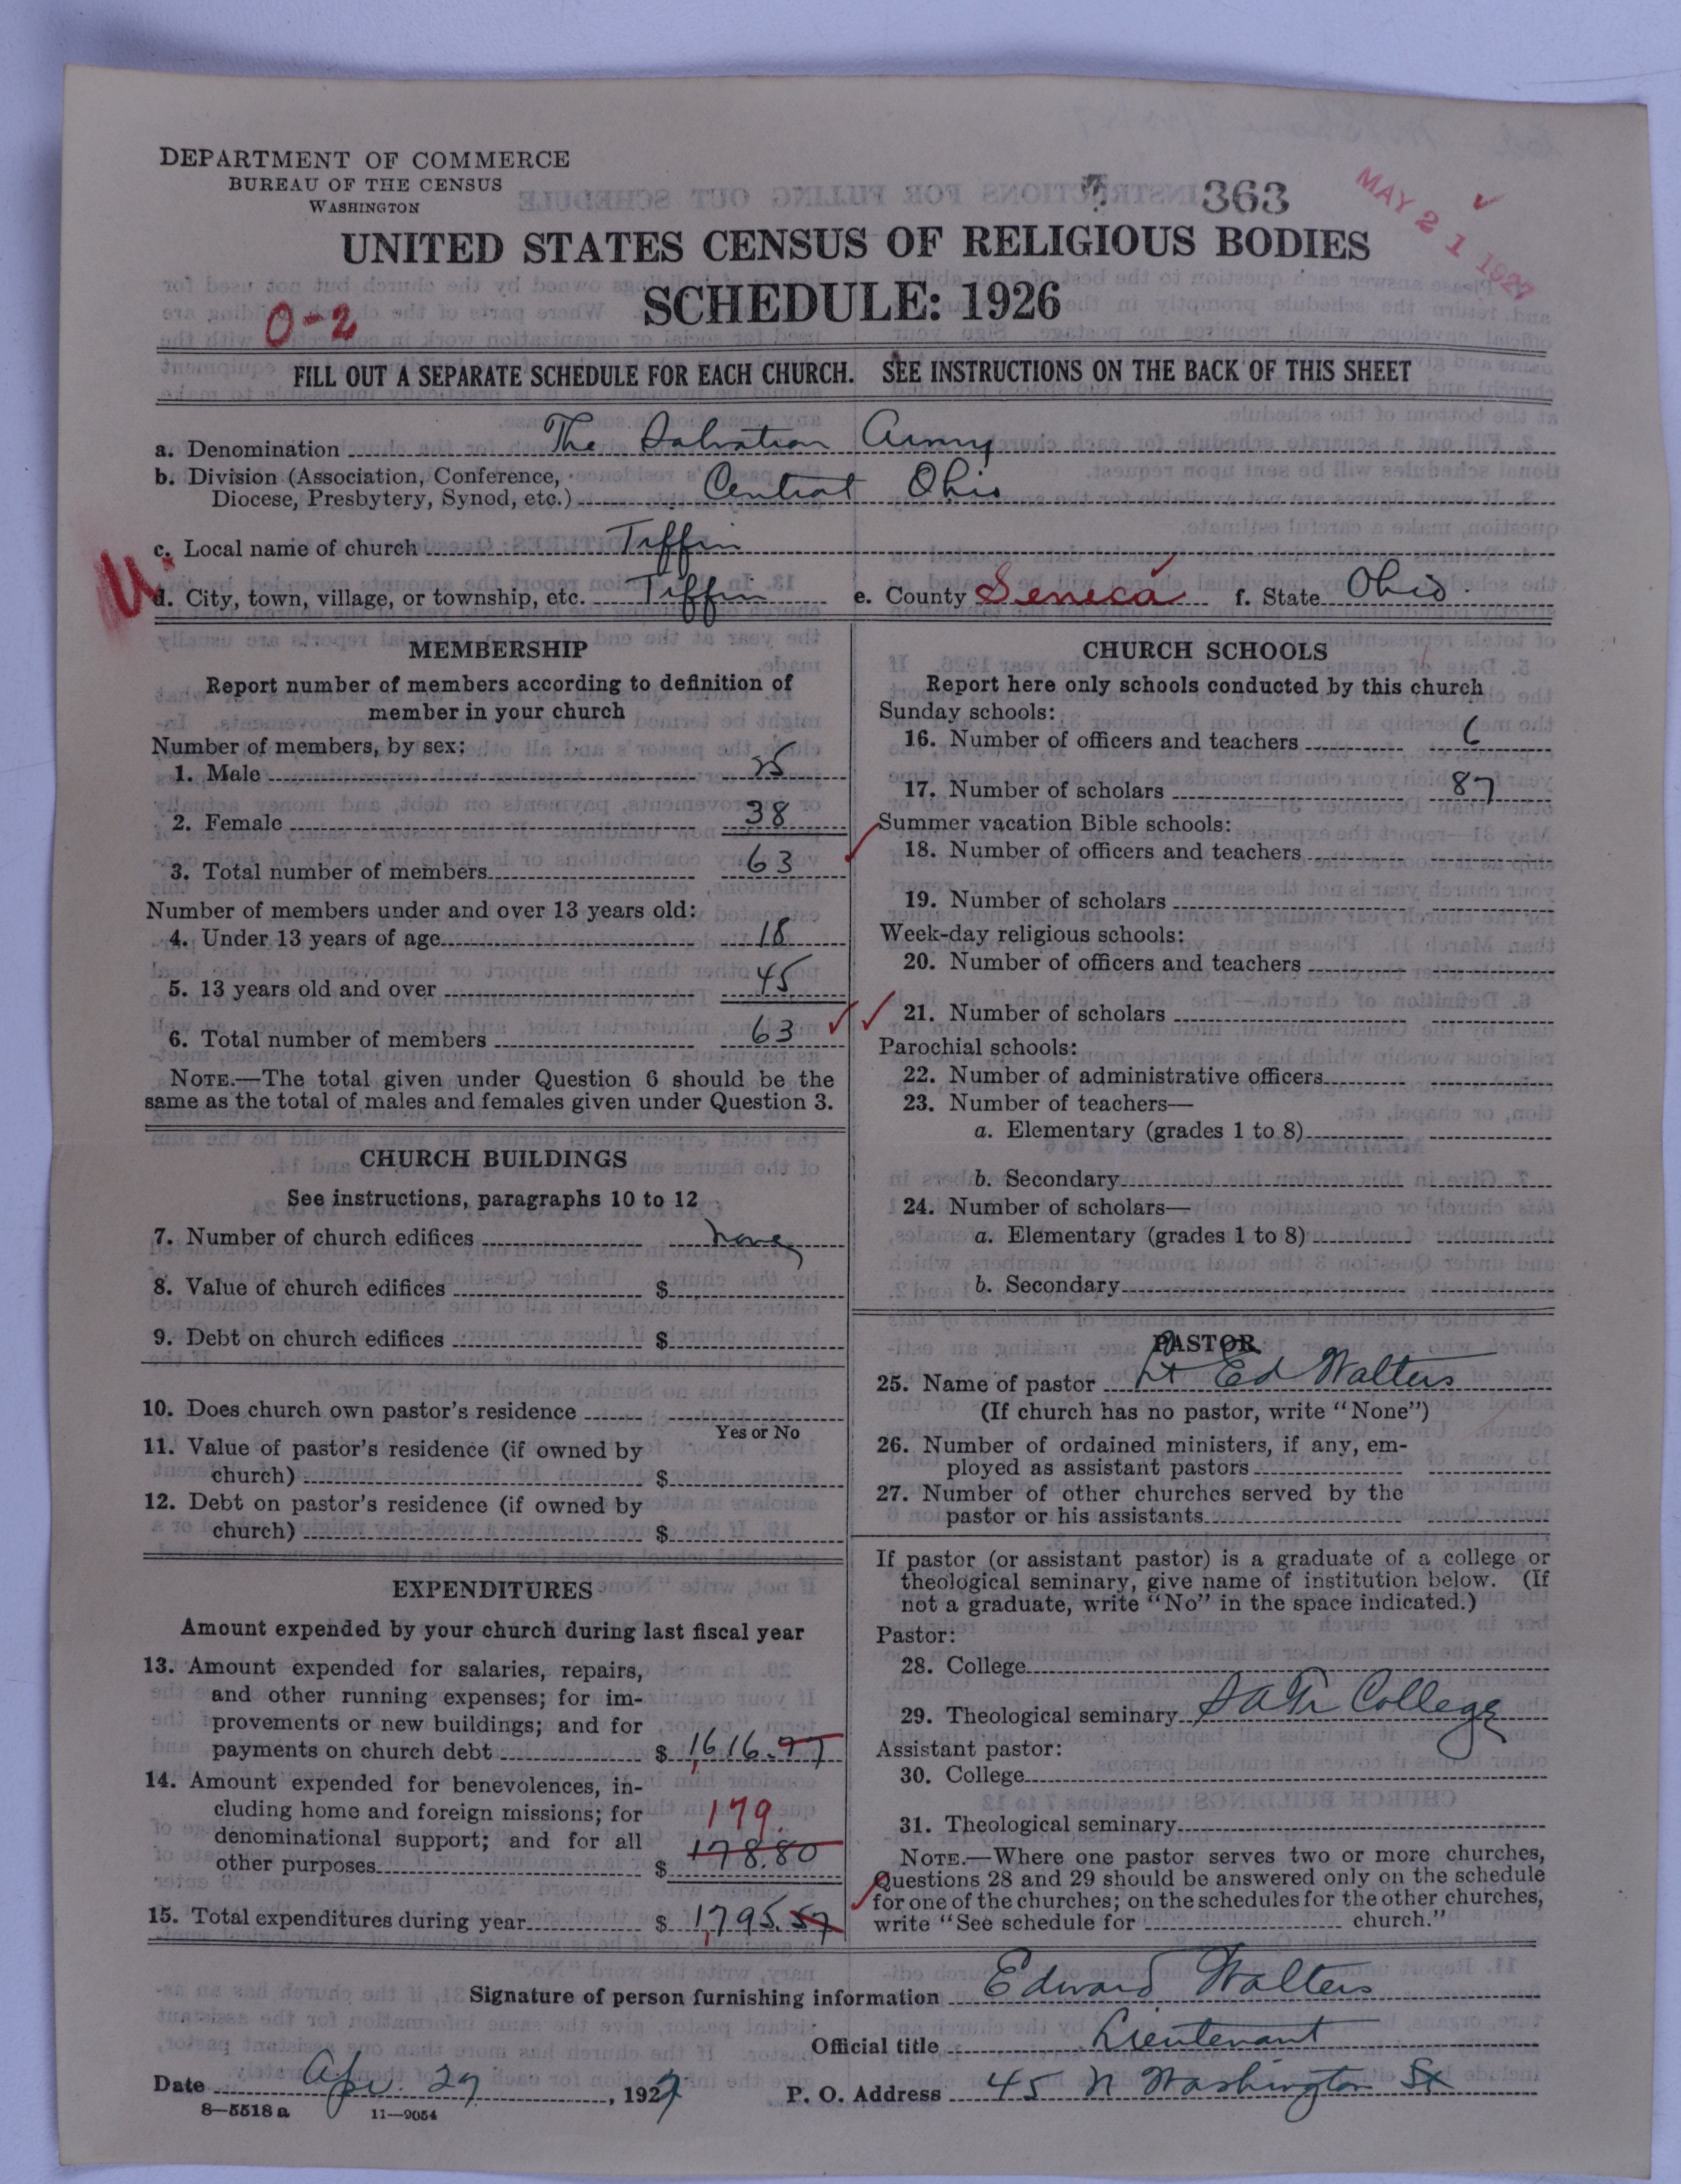 DEPARTMENT OF COMMERCE
BUREAU OF THE CENSUS
WASHINGTON
363
MAY 21 1927
UNITED STATES CENSUS OF RELIGIOUS BODIES
SCHEDULE: 1926
0-2
FILL OUT A SEPARATE SCHEDULE FOR EACH CHURCH. SEE INSTRUCTIONS ON THE BACK OF THIS SHEET
a. Denomination The Salvation Army
b. Division (Association, Conference,
Diocese, Presbytery, Synod, etc.) Central Ohio
c. Local name of church Tiffin
d. City, town, village, or township, etc. Tiffin e. County Seneca f. State Ohio
MEMBERSHIP
Report number of members according to definition of
member in your church
Number of members, by sex:
1. Male 25
2. Female 38
3. Total number of members 63
Number of members under and over 13 years old:
4. Under 13 years of age 18
5. 13 years old and over 45
6. Total number of members 63
NOTE.—The total given under Question 6 should be the
same as the total of males and females given under Question 3.
CHURCH BUILDINGS
See instructions, paragraphs 10 to 12
7. Number of church edifices none
8. Value of church edifices $
9. Debt on church edifices $
10. Does church own pastor's residence
Yes or No
11. Value of pastor's residence (if owned by
church) $
12. Debt on pastor's residence (if owned by
church) $
EXPENDITURES
Amount expended by your church during last fiscal year
13. Amount expended for salaries, repairs,
and other running expenses; for im-
provements or new buildings; and for
payments on church debt $ 1,616.77
14. Amount expended for benevolences, in-
cluding home and foreign missions; for
179.
denominational support; and for all
other purposes $ 178.80
15. Total expenditures during year $ 1,795.57
CHURCH SCHOOLS
Report here only schools conducted by this church
Sunday schools:
16. Number of officers and teachers 6
17. Number of scholars 87
Summer vacation Bible schools:
18. Number of officers and teachers
19. Number of scholars
Week-day religious schools:
20. Number of officers and teachers
21. Number of scholars
Parochial schools:
22. Number of administrative officers
23. Number of teachers—
a. Elementary (grades 1 to 8)
b. Secondary
24. Number of scholars—
a. Elementary (grades 1 to 8)
b. Secondary
PASTOR
25. Name of pastor Lt Ed Walters
(If church has no pastor, write "None")
26. Number of ordained ministers, if any, em-
ployed as assistant pastors
27. Number of other churches served by the
pastor or his assistants
If pastor (or assistant pastor) is a graduate of a college or
theological seminary, give name of institution below. (If
not a graduate, write "No" in the space indicated.)
Pastor:
28. College
29. Theological seminary College
Assistant pastor:
30. College
31. Theological seminary
NOTE.—Where one pastor serves two or more churches,
Questions 28 and 29 should be answered only on the schedule
for one of the churches; on the schedules for the other churches,
write "See schedule for church."
Signature of person furnishing information Edward Walters
Official title Lieutenant
Date Apr. 29, 1927 P. O. Address 45 N Washington St
8—5518 a 11—9054